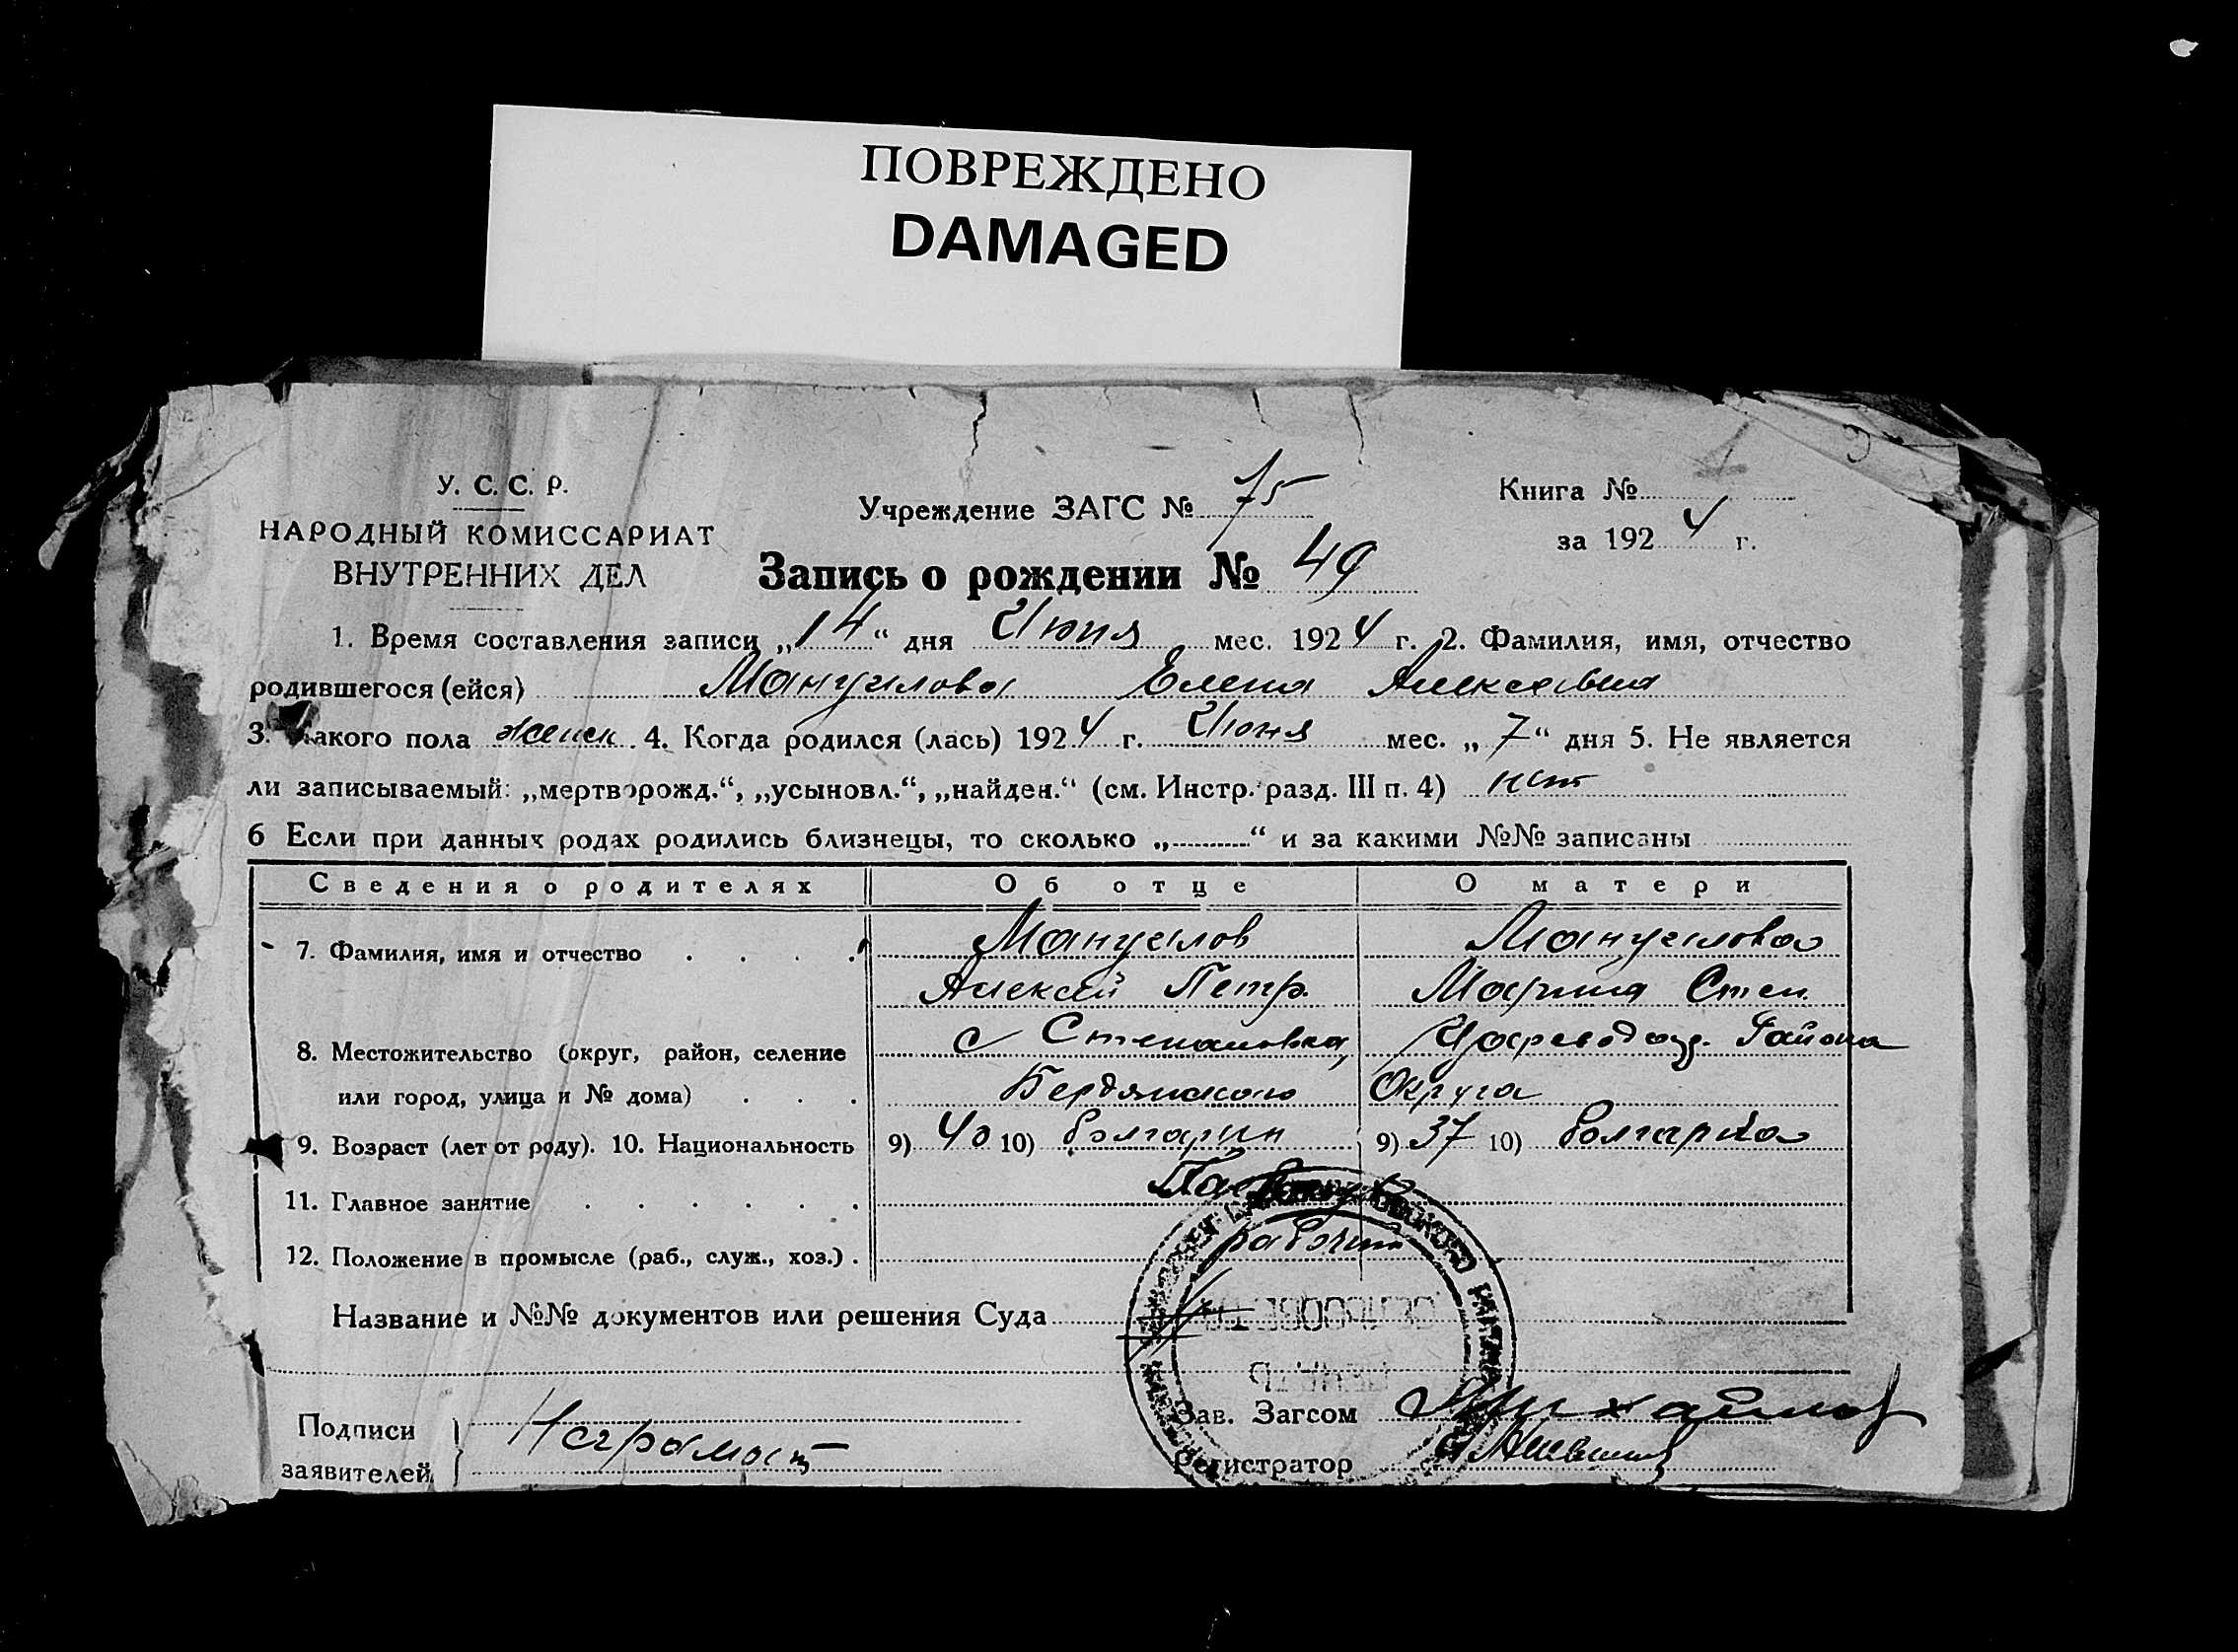 ПОВРЕЖДЕНО
DAMAGED
У. С. С. Р.
НАРОДНЫЙ КОМИССАРИАТ
ВНУТРЕННИХ ДЕЛ
Учреждение ЗАГС № 75
Книга №
за 1924 г.
Запись о рождении № 49
1. Время составления записи „14“ дня Июня мес. 1924 г. 2. Фамилия, имя, отчество
родившегося (ейся) Мануилова Елена Алексевна
3. Какого пола женск 4. Когда родился (лась) 1924 г. Июня мес. „7“ дня 5. Не является
ли записываемый: „мертворожд.“, „усыновл.“, „найден.“ (см. Инстр. разд. III п. 4) нет
6 Если при данных родах родились близнецы, то сколько „..........“ и за какими №№ записаны
Сведения о родителях Об отце О матери
7. Фамилия, имя и отчество Мануилов Мануилова
Алексей Петр. Марина Степ.
8. Местожительство (округ, район, селение с Степановка, Района
или город, улица и № дома) Бердянского Округа
9. Возраст (лет от роду). 10. Национальность 9) 40 10) болгарин 9) 37 10) болгарка
11. Главное занятие
12. Положение в промысле (раб., служ., хоз.)
Название и №№ документов или решения Суда
Подписи
заявителей
Неграмот
Зав. Загсом Михайлов
Регистратор